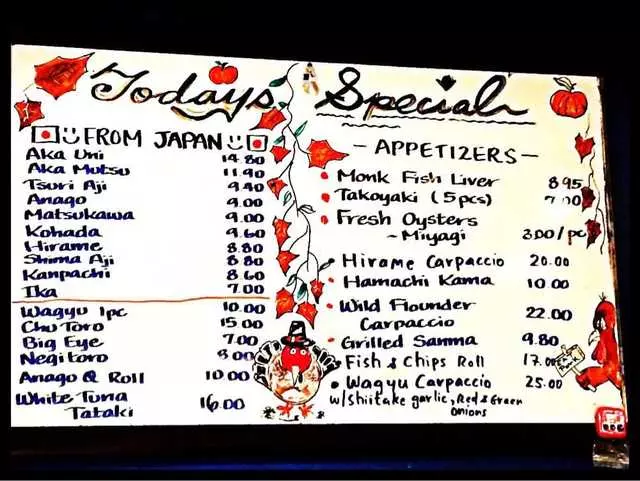 Todays Special
FROM JAPAN
Aka Uni 14.80
Aka Mutsu 11.90
Tsuri Aji 9.40
Anago 9.00
Matsukawa 9.00
Kohada 9.60
Hirame 8.80
Shima Aji 8.80
Kanpachi 8.60
Ika 7.00
Wagyu 1pc 10.00
Chu Toro 15.00
Big Eye 7.00
Negitoro 8.00
Anago Q Roll 10.00
White Tuna
Tataki 16.00
- APPETIZERS -
Monk Fish Liver 8.95
Takoyaki (5pcs) 7.00
Fresh Oysters
- Miyagi 3.00/pc
Hirame Carpaccio 20.00
Hamachi Kama 10.00
Wild Flounder
Carpaccio 22.00
Grilled Sanma 9.80
Fish & Chips Roll 17.00
Wagyu Carpaccio 25.00
w/shiitake garlic, Red & Green
onions